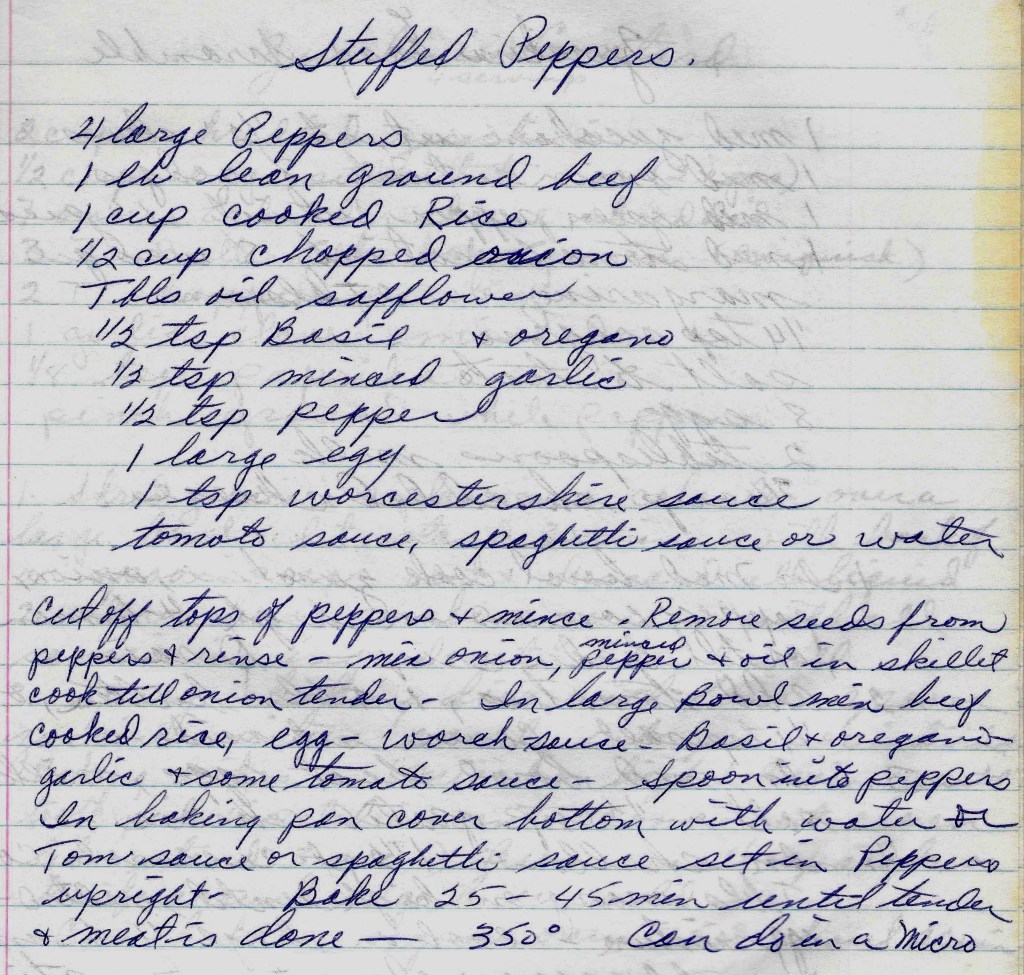 Stuffed Peppers.
4 large Peppers
1 lb lean ground beef
1 cup cooked Rice
1/2 cup chopped onion
Tbls oil safflower
1/2 tsp Basil & oregano
1/2 tsp minced garlic
1/2 tsp pepper
1 large egg
1 tsp worcestershire sauce
tomato sauce, spaghetti sauce or water
Cut off tops of peppers & mince. Remove seeds from
minced
peppers & rinse - mix onion, pepper & oil in skillet
cook till onion tender - In large Bowl mix beef
cooked rice, egg - worch sauce - Basil & oregano
garlic & some tomato sauce - Spoon into peppers
In baking pan cover bottom with water or
Tom sauce or spaghetti sauce set in Peppers
upright - Bake 25 - 45 min until tender
& meat is done — 350° Can do in a Micro